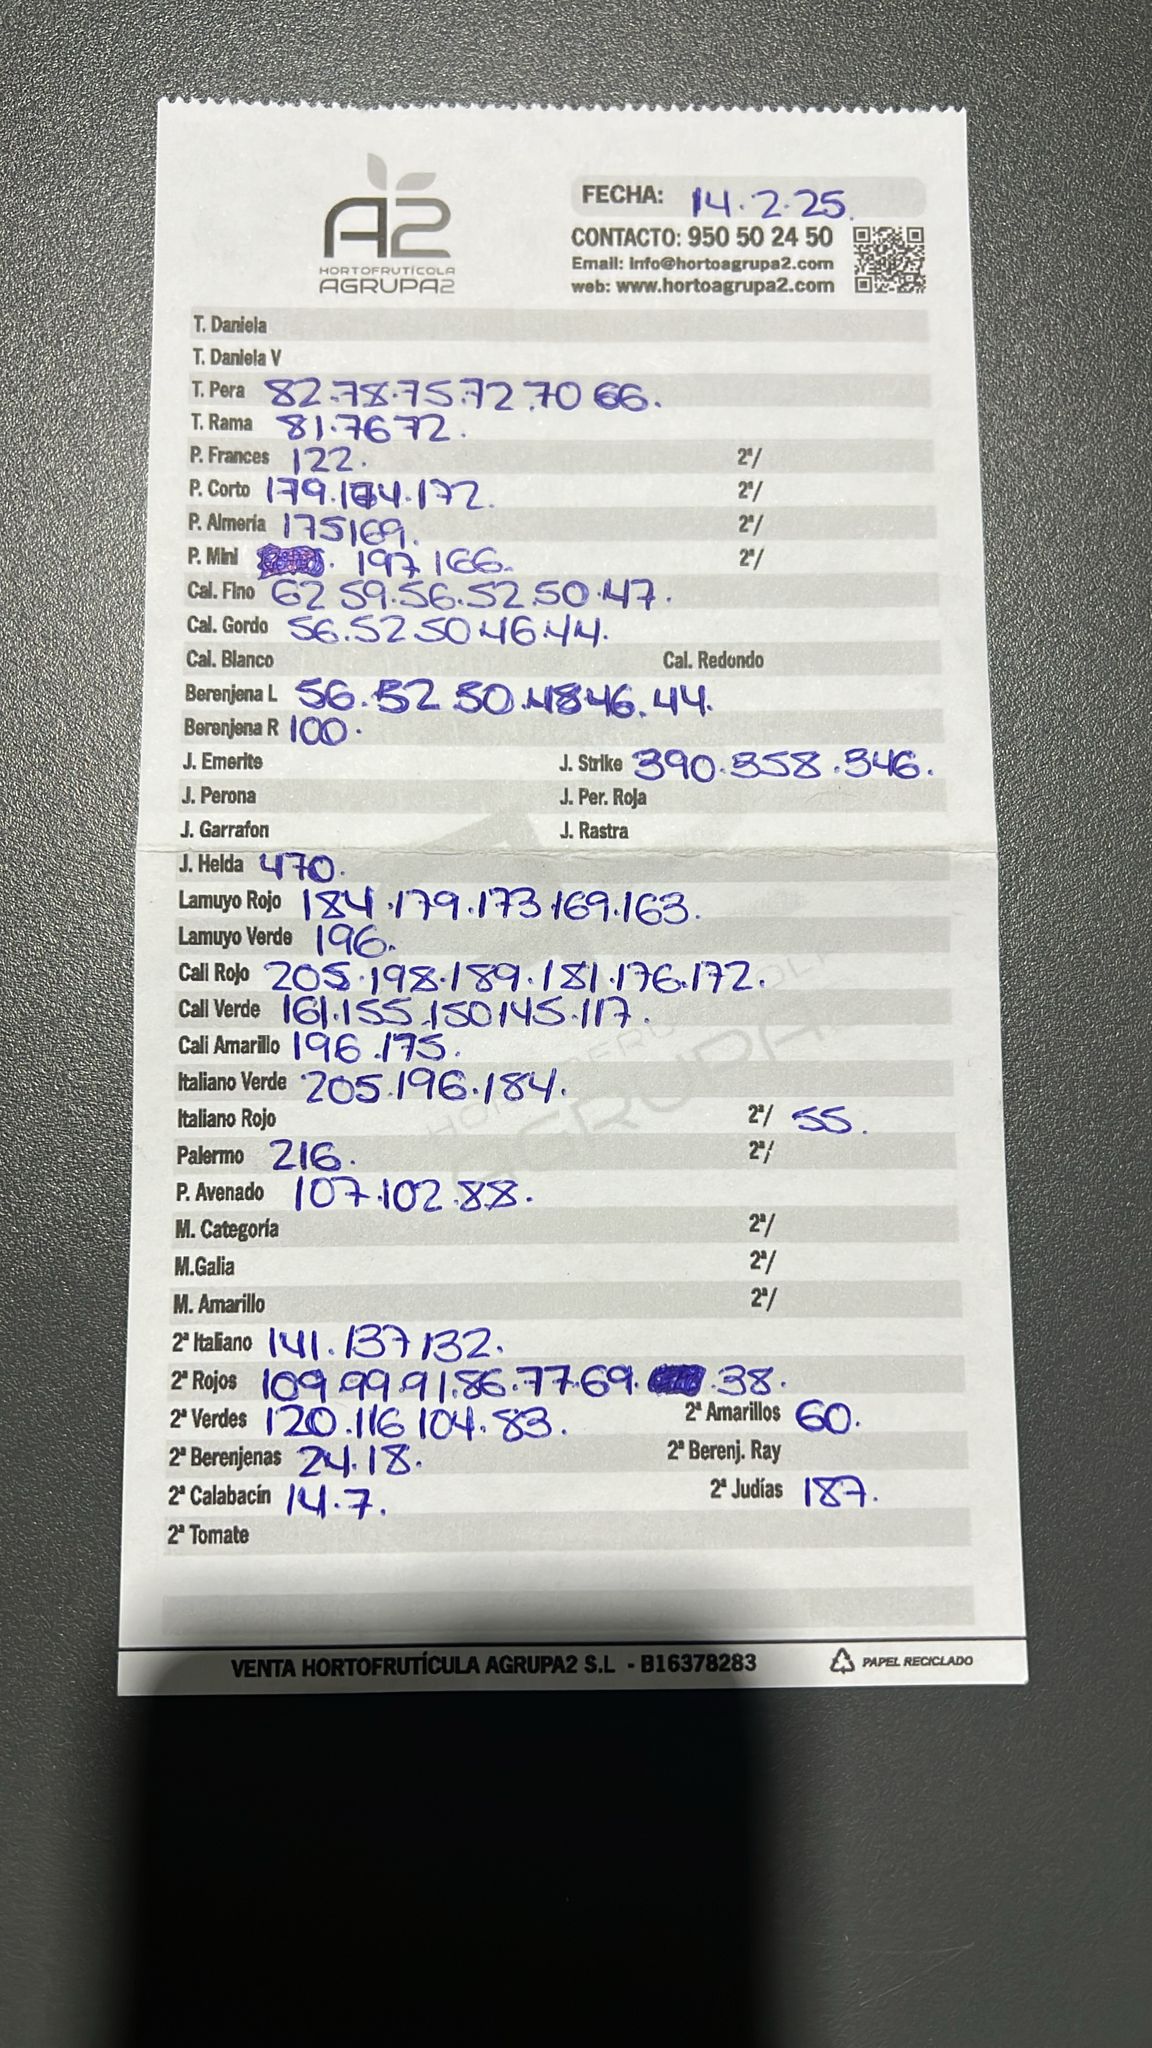 A2
HORTOFRUTÍCOLA
AGRUPA2
FECHA: 14.2.25.
CONTACTO: 950 50 24 50
Email: info@hortoagrupa2.com
web: www.hortoagrupa2.com
T. Daniela
T. Daniela V
T. Pera 82.78.75.72.70 66.
T. Rama 81.76 72.
P. Frances 122. 2ª/
P. Corto 179.174.172. 2ª/
P. Almería 175 169. 2ª/
P. Mini 197 166. 2ª/
Cal. Fino 62 59.56.52.50.47.
Cal. Gordo 56.52 50 46.44.
Cal. Blanco Cal. Redondo
Berenjena L 56.52 50.48 46.44.
Berenjena R 100.
J. Emerite J. Strike 390.358.346.
J. Perona J. Per. Roja
J. Garrafon J. Rastra
J. Helda 470.
Lamuyo Rojo 184.179.173 169.163.
Lamuyo Verde 196.
Cali Rojo 205.198.189.181.176.172.
Cali Verde 161.155.150 145.117.
Cali Amarillo 196.175.
Italiano Verde 205.196.184.
Italiano Rojo 2ª/ 55.
Palermo 216. 2ª/
P. Avenado 107.102.88.
M. Categoría 2ª/
M.Galia 2ª/
M. Amarillo 2ª/
2ª Italiano 141.137 132.
2ª Rojos 109.99.91.86.77.69. .38.
2ª Verdes 120.116 104.83. 2ª Amarillos 60.
2ª Berenjenas 24.18. 2ª Berenj. Ray
2ª Calabacín 14.7. 2ª Judías 187.
2ª Tomate
VENTA HORTOFRUTÍCULA AGRUPA2 S.L - B16378283 PAPEL RECICLADO